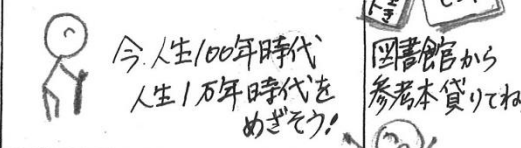 今.人生100年時代
人生1万年時代を
めざそう!
図書館から
参考本貸りてね